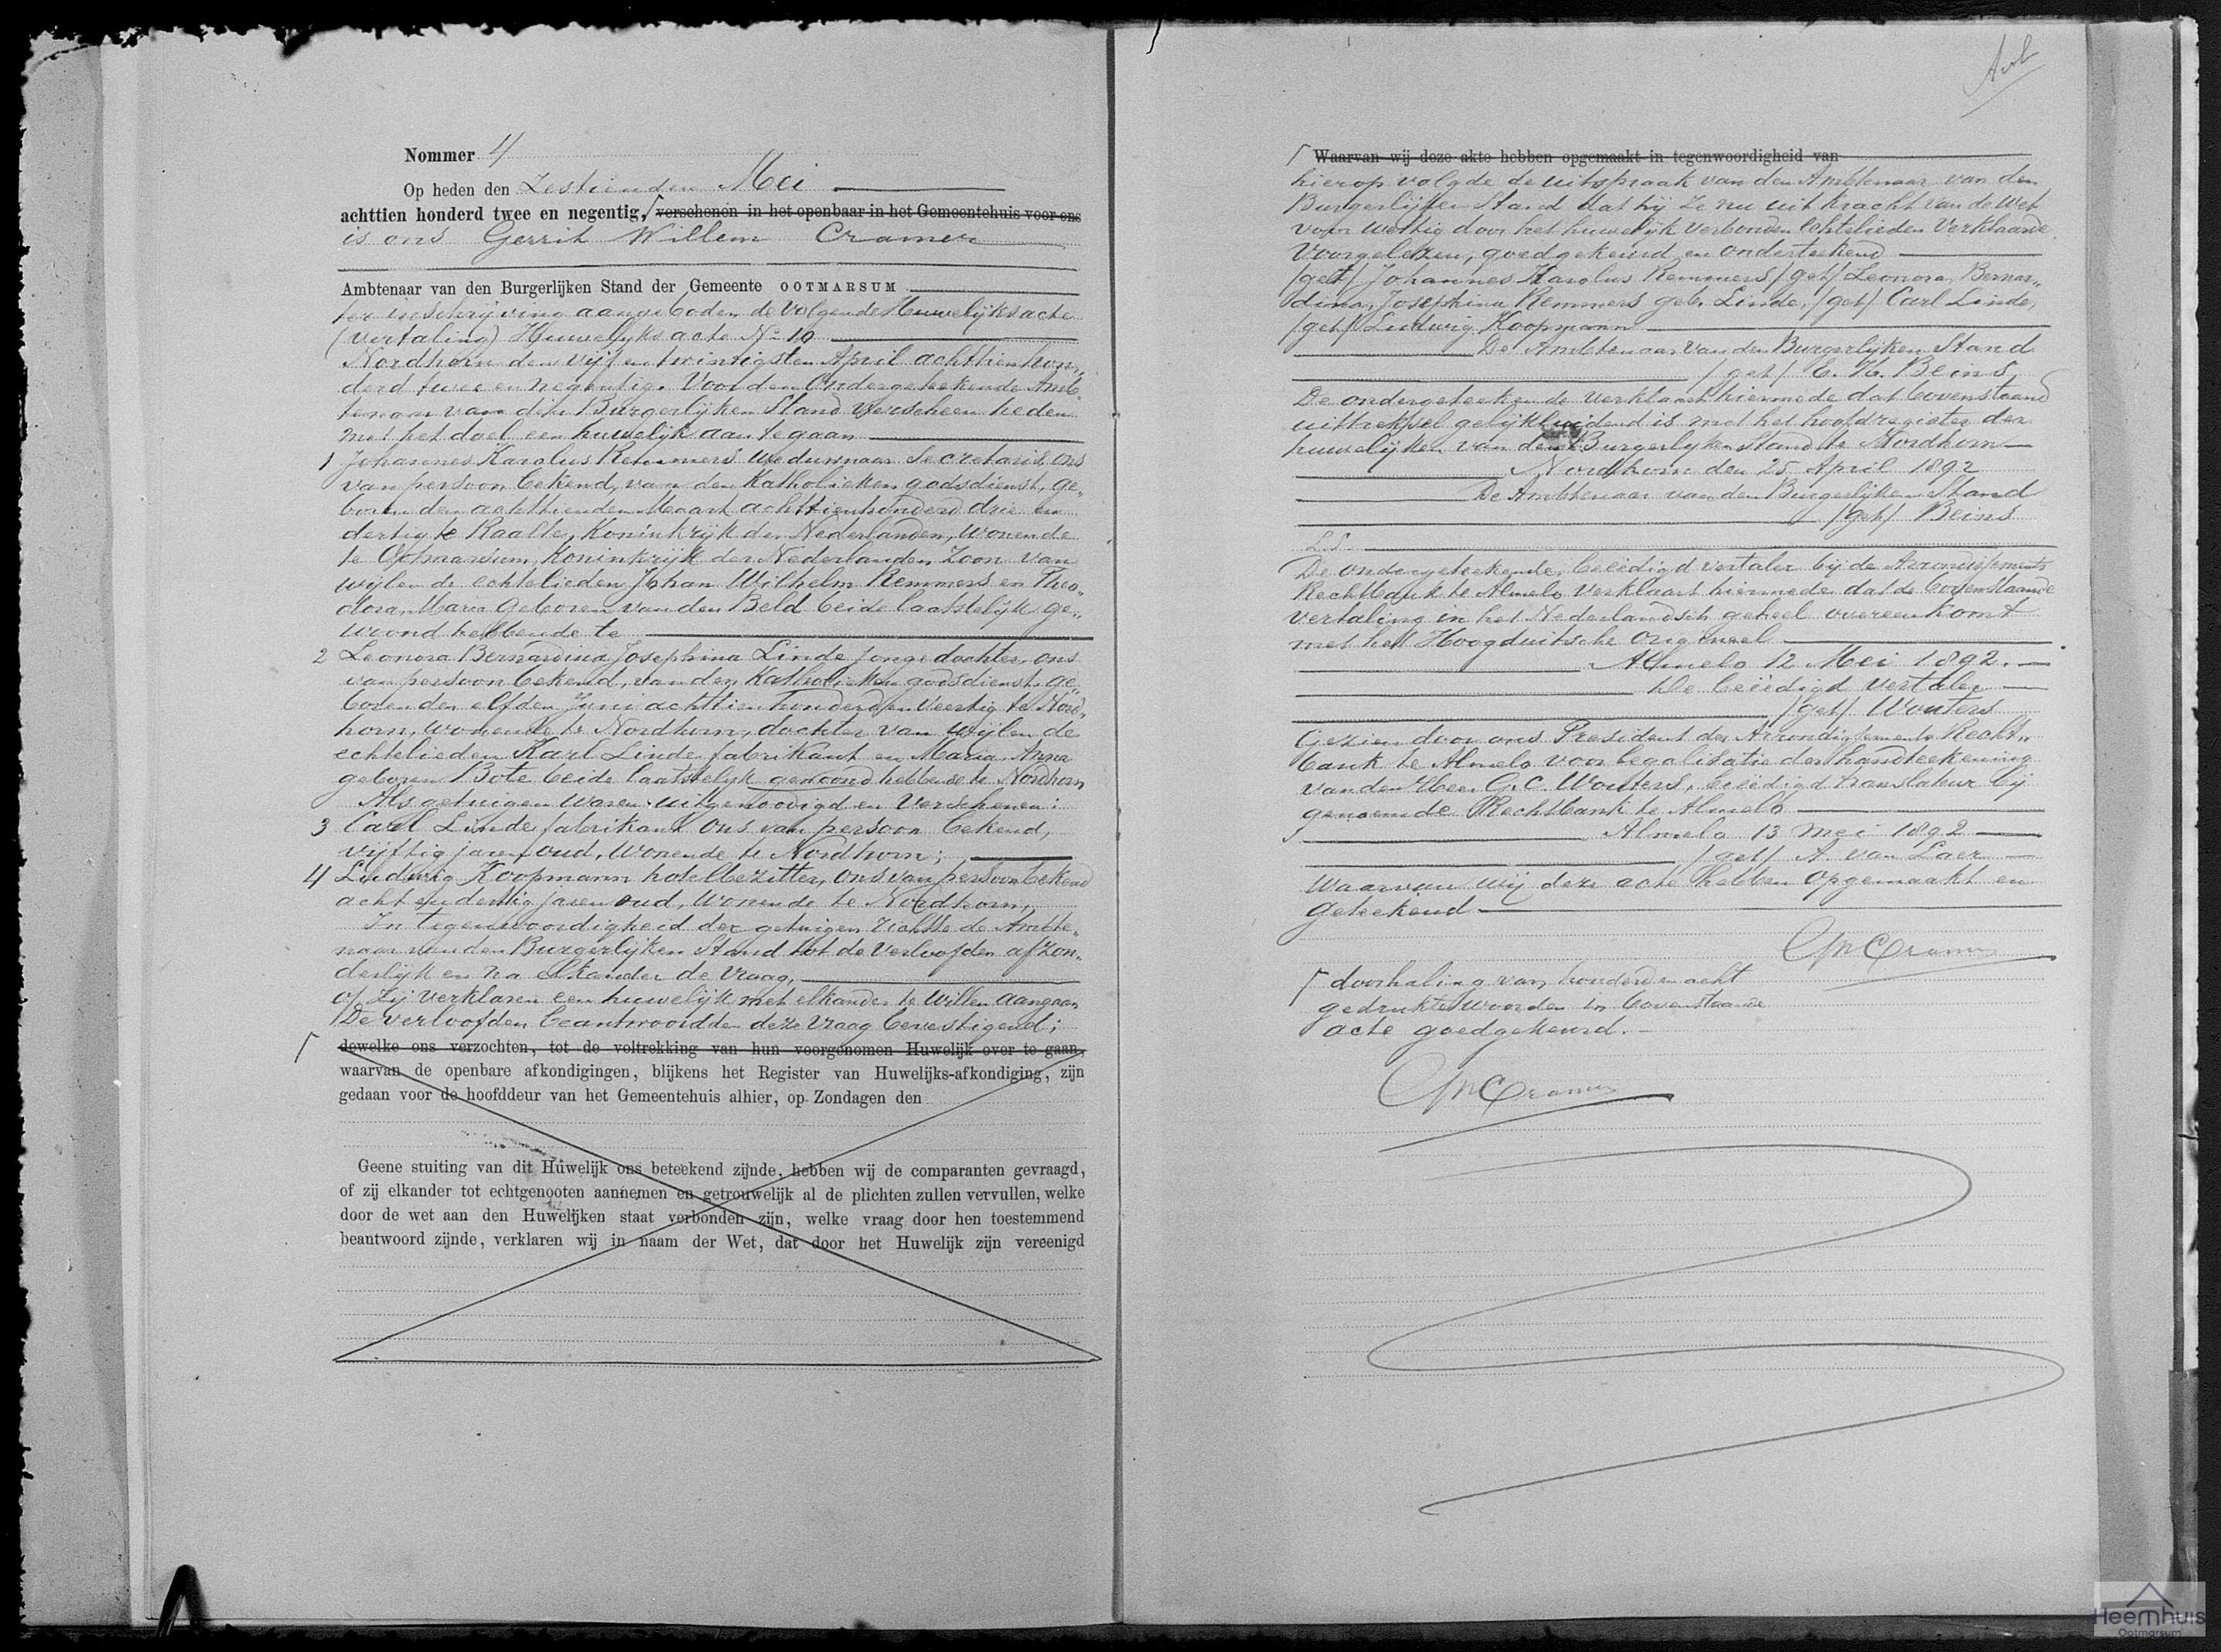 Nommer 4
Op heden den Zestienden Mei
achttien honderd twee en negentig, verschenen in het openbaar in het Gemeentehuis voor ons
is ons Gerrit Willem Cramer
Ambtenaar van den Burgerlijken Stand der Gemeente OOTMARSUM
ter inschrijving aangeboden de volgende Huwelijksacte
(vertaling) Huwelijks acte No 10
Nordhorn den vijf en twintigsten April achttienhon„
derd twee en negentig. Voor den Ondergeteekende Amb„
tenaar van den Burgerlijken Stand verscheen heden
met het doel een huwelijk aan te gaan
1 Johannes Karolus Remmers weduwnaar Secretaris, ons
van persoon bekend, van den Katholieken godsdienst, ge„
boren den achttienden Maart achttienhonderd drie en
dertig te Raalte, Koninkrijk der Nederlanden, wonende
te Ootmarsum, Koninkrijk der Nederlanden, Zoon van
wijlen de echtelieden Johan Wilhelm Remmers en Theo„
dora, Maria geboren van den Beld beide laatstelijk ge„
woond hebbende te
2 Leonora Bernardina Josephina Linde jonge dochter, ons
van persoon bekend, van den Katholieken godsdienst, ge„
boren den elfden Juni achttien honderd en veertig te Nord„
horn, wonende te Nordhorn, dochter van wijlen de
echtelieden Karl Linde, fabrikant en Maria Anna
geboren Bote beide laatstelijk gewoond hebbende te Nordhorn
Als getuigen waren uitgenoodigd en verschenen:
3 Carl Linde, fabrikant ons van persoon bekend,
vijftig jaren oud, wonende te Nordhorn;
4 Ludwig Koopmann hotelbezitter, ons van persoon bekend
acht en dertig jaren oud, wonende te Nordhorn,
In tegenwoordigheid der getuigen richtte de Ambte„
naar van den Burgerlijken Stand tot de Verloofden afzon„
derlijk en na elkander de vraag,
of zij verklaren een huwelijk met elkander te willen aangaan
De verloofden beantwoordden deze vraag bevestigend;
dewelke ons verzochten, tot de voltrekking van hun voorgenomen Huwelijk over te gaan,
waarvan de openbare afkondigingen, blijkens het Register van Huwelijks-afkondiging, zijn
gedaan voor de hoofddeur van het Gemeentehuis alhier, op Zondagen den
Geene stuiting van dit Huwelijk ons beteekend zijnde, hebben wij de comparanten gevraagd,
of zij elkander tot echtgenooten aannemen en getrouwelijk al de plichten zullen vervullen, welke
door de wet aan den Huwelijken staat verbonden zijn, welke vraag door hen toestemmend
beantwoord zijnde, verklaren wij in naam der Wet, dat door het Huwelijk zijn vereenigd
Waarvan wij deze akte hebben opgemaakt in tegenwoordigheid van
hierop volgde de uitspraak van den Ambtenaar van den
Burgerlijken Stand dat hij ze nu uit kracht van de Wet
voor wettig door het huwelijk verbonden Echtelieden Verklaarde
Voorgelezen, goedgekeurd en onderteekend
/get/ Johannes Karolus Remmers /get/ Leonora, Bernar„
dina, Josephina Remmers geb. Linde, /get/ Carl Linde,
/get/ Ludwig Koopmann
De Ambtenaar van den Burgerlijken Stand
/get/ Beins
De ondergeteekende verklaart hiermede dat bovenstaand
uittreksel gelijkluidend is met het hoofdregister der
huwelijken van den Burgerlyken Stand te Nordhorn
Nordhorn den 25 April 1892
De Ambtenaar van den Burgerlijken Stand
/get/ Beins
L.S.
De ondergeteekende, beëedigd vertaler bij de Arrondissements
Rechtbank te Almelo verklaart hiermede dat de bovenstaande
vertaling in het Nederlandsch geheel overeenkomt
met het Hoogduitsche origineel
Almelo 12 Mei 1892.
De beëedigd vertaler
/get/ Wouters
Gezien door ons President der Arrondissements Recht„
bank te Almelo voor legalisatie der handteekening
van den Heer G. C. Wouters, beëedigd translateur bij
genoemde Rechtbank te Almelo
Almelo 13 Mei 1892
/get/ A. van Laer
Waarvan wij deze acte hebben opgemaakt en
geteekend
GWCramer
doorhaling van honderd en acht
gedrukte woorden in bovenstaande
acte goedgekeurd.
GWCramer
Heemhuis
Ootmarsum